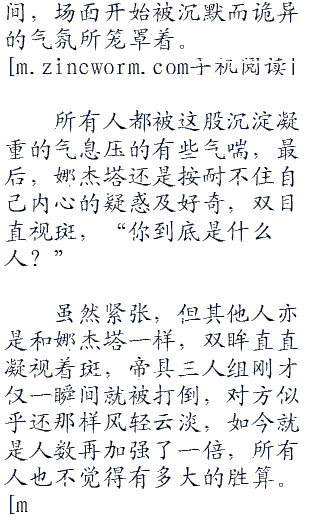 间，场面开始被沉默而诡异
的气氛所笼罩着。
[m.zincworm.com手机阅读i
所有人都被这股沉淀凝
重的气息压的有些气喘，最
后，娜杰塔还是按耐不住自
己内心的疑惑及好奇，双目
直视斑，“你到底是什么
人？”
虽然紧张，但其他人亦
是和娜杰塔一样，双眸直直
凝视着斑，帝具三人组刚才
仅一瞬间就被打倒，对方似
乎还那样风轻云淡，如今就
是人数再加强了一倍，所有
人也不觉得有多大的胜算。
[m